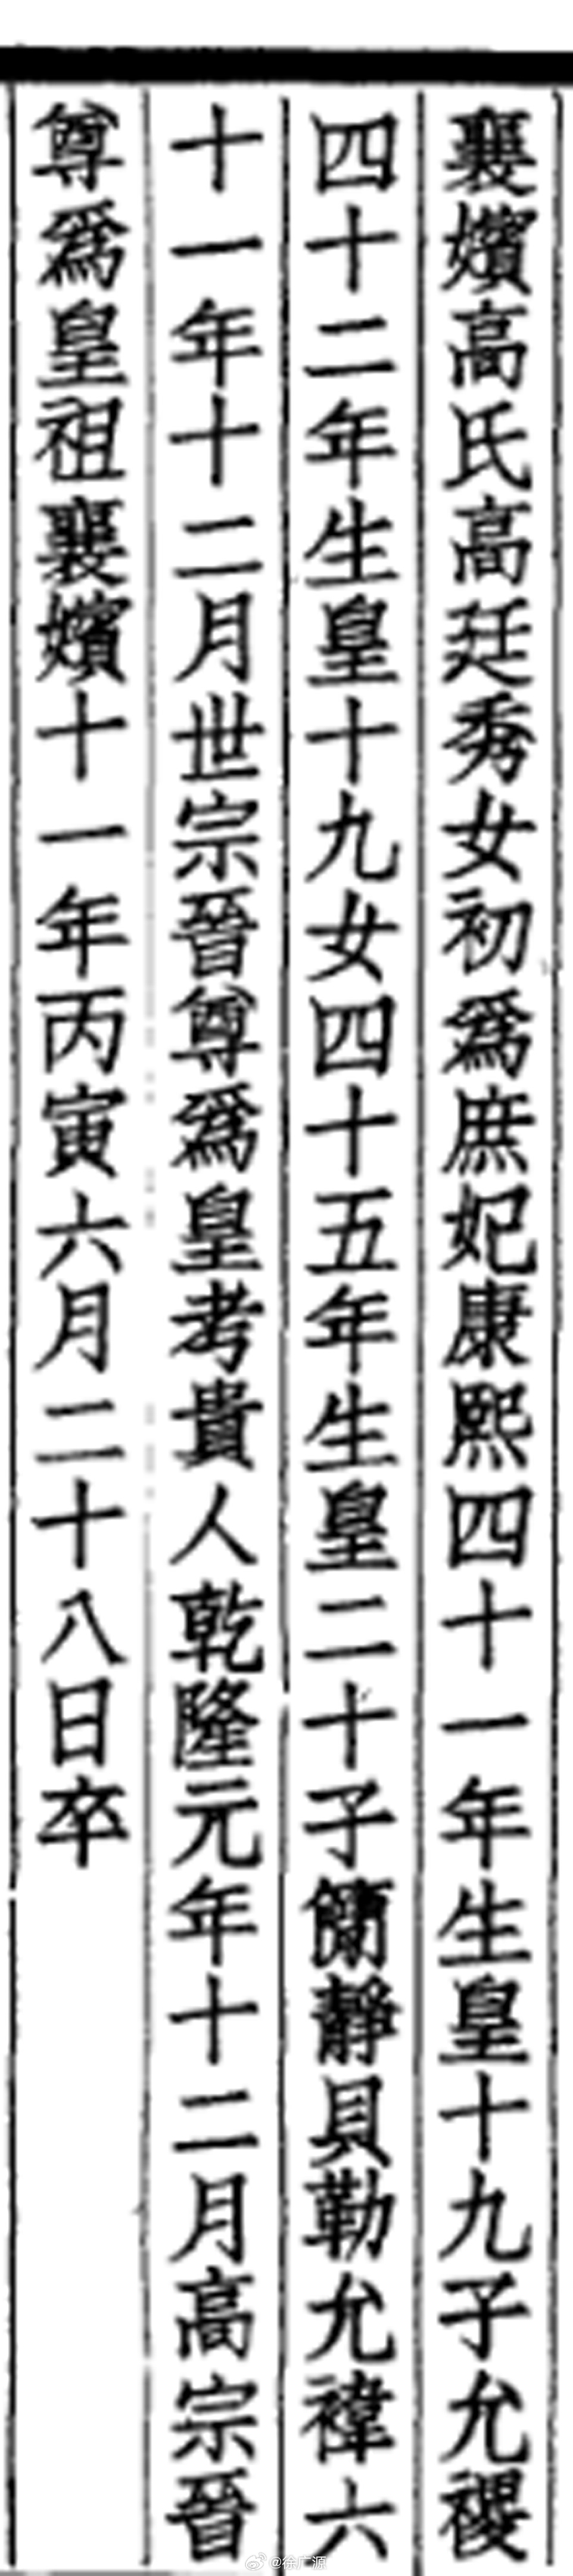 襄嬪高氏高廷秀女初爲庶妃康熙四十一年生皇十九子允禝
四十二年生皇十九女四十五年生皇二十子簡靖貝勒允禕六
十一年十二月世宗晉尊爲皇考貴人乾隆元年十二月高宗晉
尊爲皇祖襄嬪十一年丙寅六月二十八日卒
@徐广源